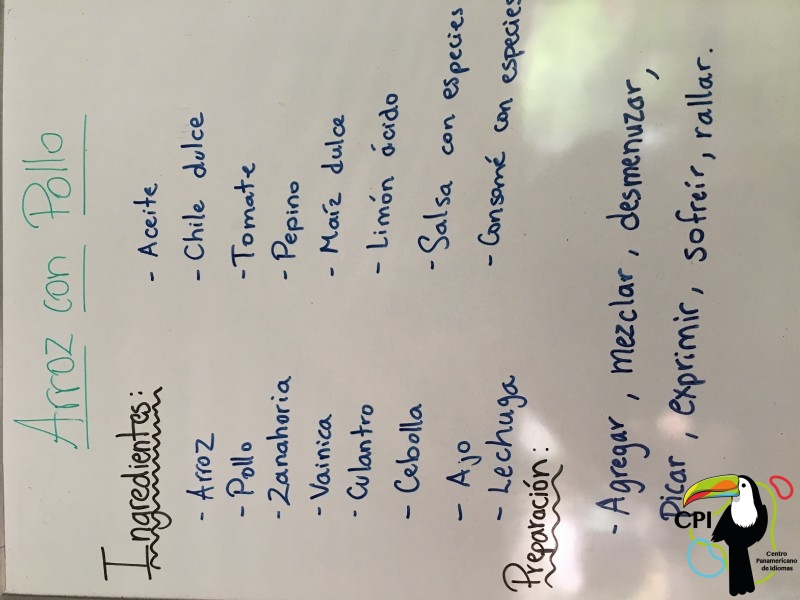 Arroz con Pollo
Ingredientes:
- Arroz
- Pollo
- Zanahoria
- Vainica
- Culantro
- Cebolla
- Ajo
- Lechuga
- Aceite
- Chile dulce
- Tomate
- Pepino
- Maíz dulce
- Limón ácido
- Salsa con especies
- Consomé con especies
Preparación:
- Agregar, mezclar, desmenuzar,
Picar, exprimir, sofreír, rallar.
CPI
Centro
Panamericano
de Idiomas